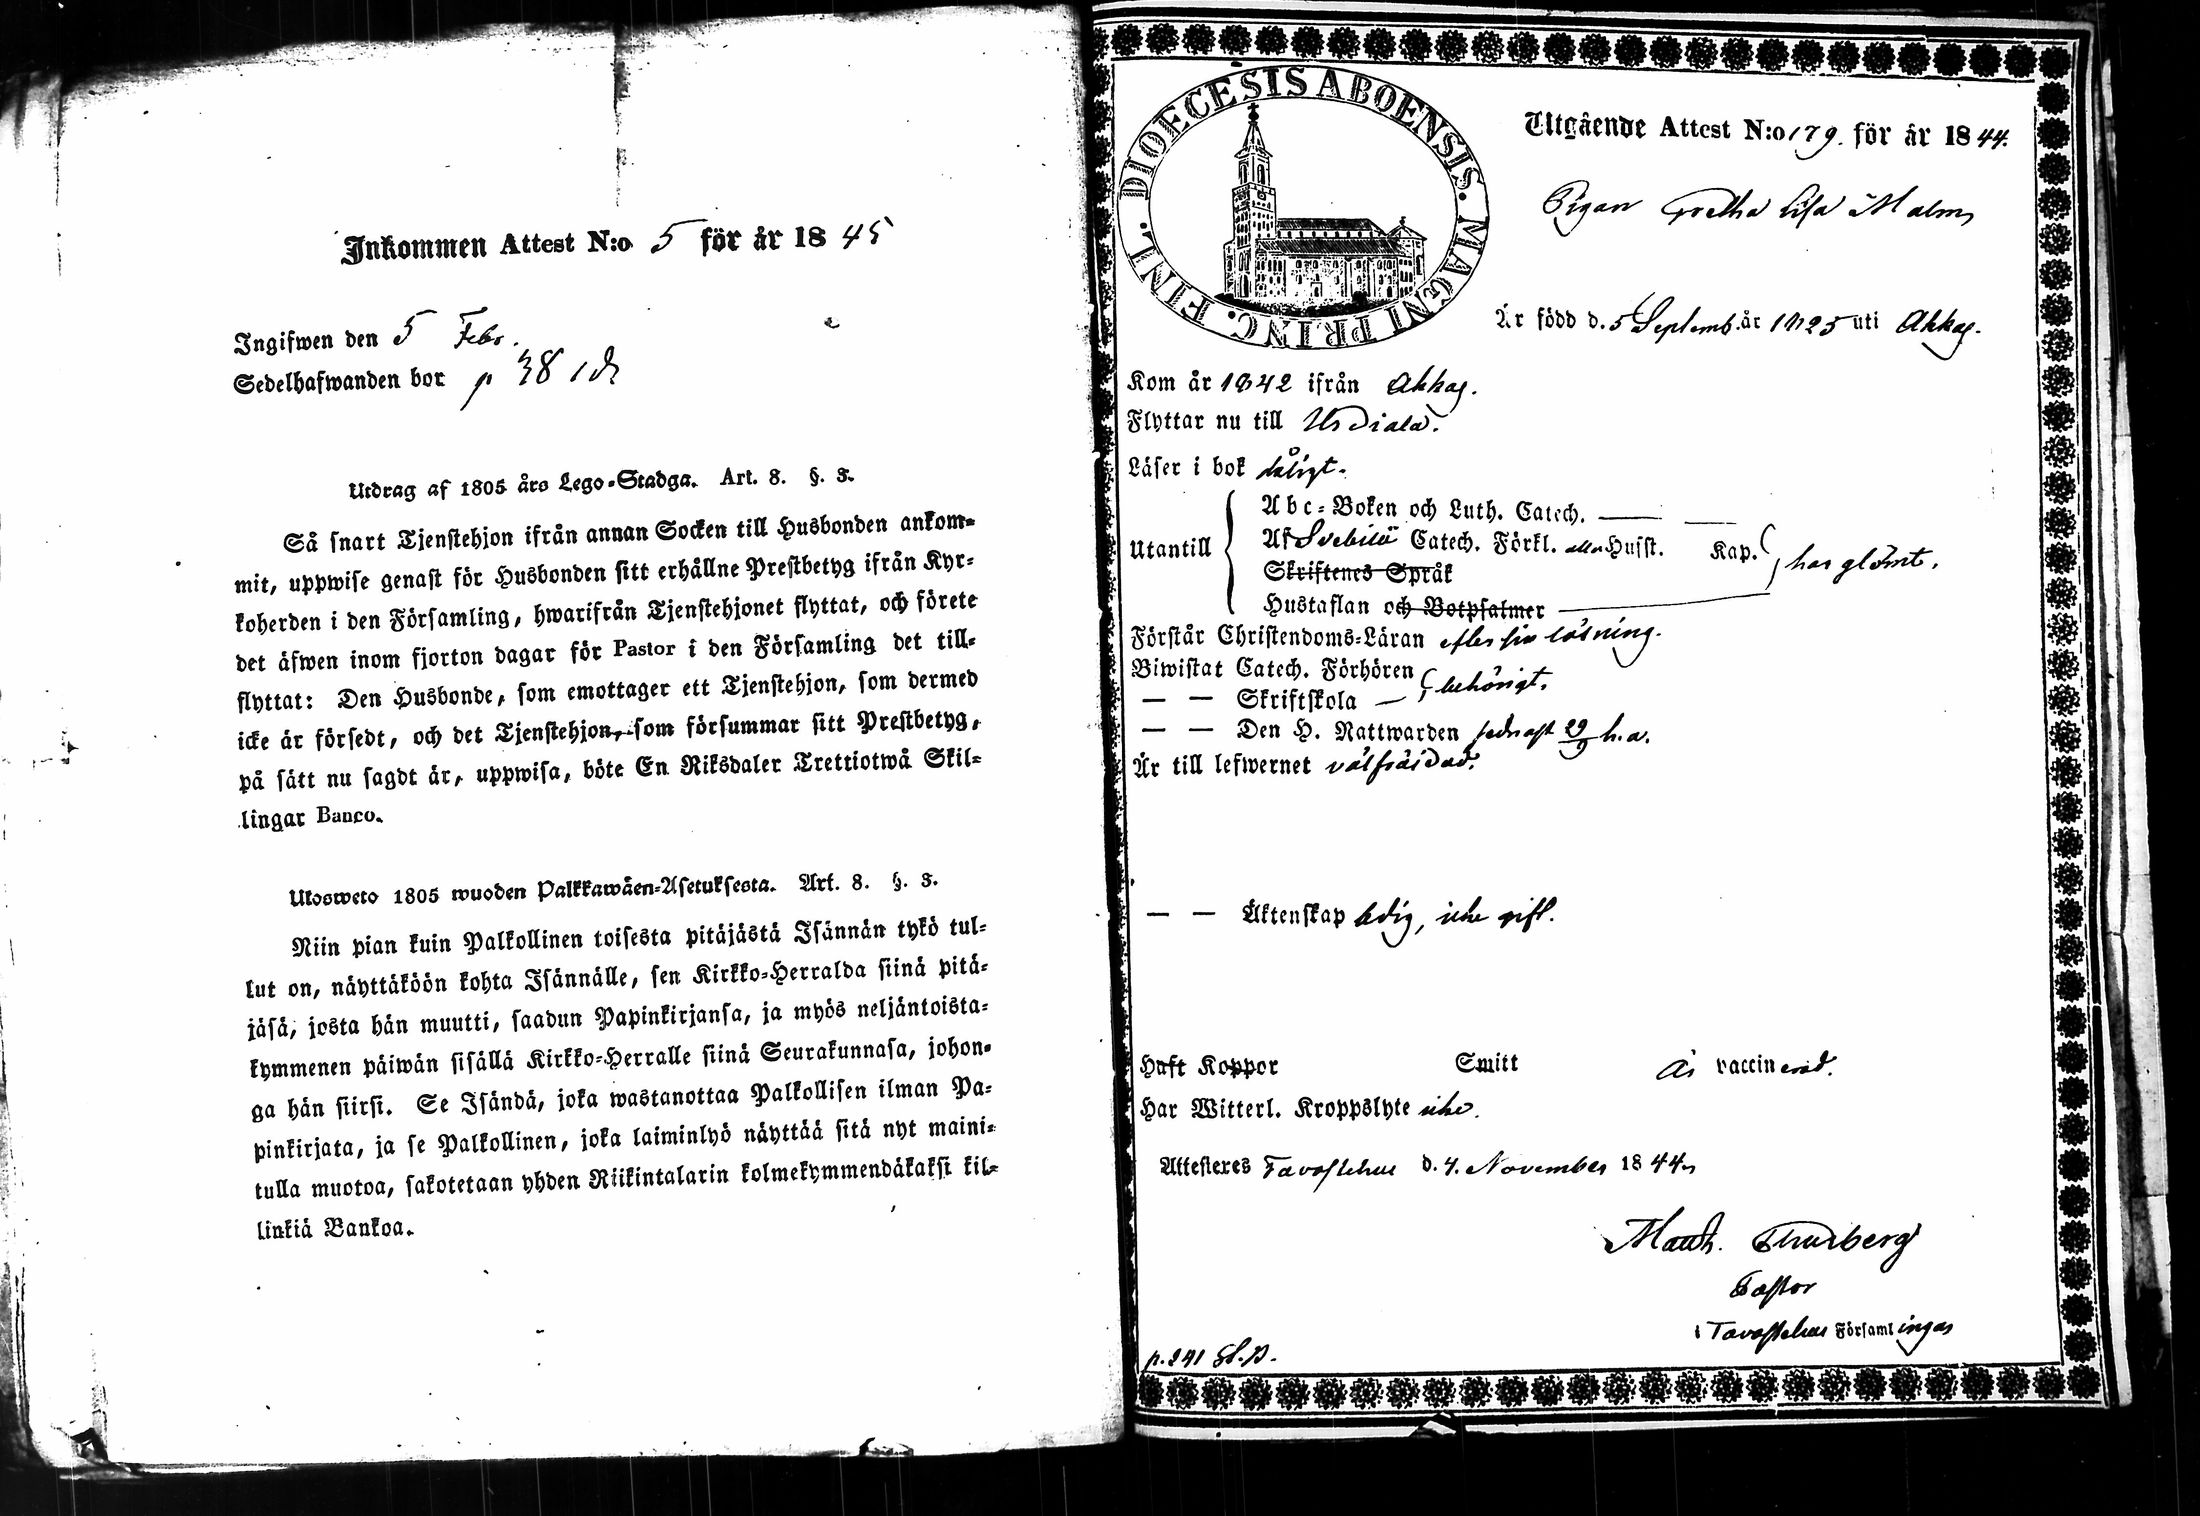 Inkommen Attest N:o 5 för år 1845
Ingifwen den 5 Febr.
Sedelhafwanden bor p 38
Utdrag af 1805 års Lego-Stadga. Art. 8. §. 3.
Så snart Tjenstehjon ifrån annan Socken till Husbonden ankom-
mit, uppwise genast för Husbonden sitt erhållne Prestbetyg ifrån Kyr-
koherden i den Församling, hwarifrån Tjenstehjonet flyttat, och förete
det äfwen inom fjorton dagar för Pastor i den Församling det till-
flyttat: Den Husbonde, som emottager ett Tjenstehjon, som dermed
icke är försedt, och det Tjenstehjon, som försummar sitt Prestbetyg,
på sätt nu sagdt är, uppwisa, böte En Riksdaler Trettiotwå Skil-
lingar Banco.
Ulosweto 1805 wuoden Palkkawäen-Asetuksesta. Art. 8. §. 3.
Niin pian kuin Palkollinen toisesta pitäjästä Isännän tykö tul-
lut on, näyttäköön kohta Isännälle, sen Kirkko-Herralda siinä pitä-
jäsä, josta hän muutti, saadun Papinkirjansa, ja myös neljäntoista-
kymmenen päiwän sisällä Kirkko-Herralle siinä Seurakunnasa, johon-
ga hän siirsi. Se Isändä, joka wastanottaa Palkollisen ilman Pa-
pinkirjata, ja se Palkollinen, joka laiminlyö näyttää sitä nyt maini-
tulla muotoa, sakotetaan yhden Riikintalarin kolmekymmendäkaksi kil-
linkiä Bankoa.
DIOECESIS ABOENSIS. MAGNI PRINC. FINL.
Utgående Attest N:o 179. för år 1844.
Pigan Gretha Lisa Malm
Är född d. 5 Septemb. år 1825 uti Akkas.
Kom år 1842 ifrån Akkas.
Flyttar nu till Urdiala.
Läser i bok dåligt.
Utantill
Abc-Boken och Luth. Catech.
Af Svebilii Catech. Förkl. eller Husst. Kap.
har glömt.
Skriftenes Språk
Hustaflan och Botpsalmer
Förstår Christendoms-Läran efter sin läsning.
Biwistat Catech. Förhören
behörigt.
— — Skriftskola —
— — Den H. Nattwarden sednast 29/9 h.a.
Är till lefwernet välfräjdad.
— — Äktenskap ledig, icke gift.
Haft Koppor Smitt Är vaccinerad.
Har Witterl. Kroppslyte icke.
Attesteres Tavastehus d. 4. November 1844
Thurberg
Pastor
i Tavastehus Församlingar
p. 241